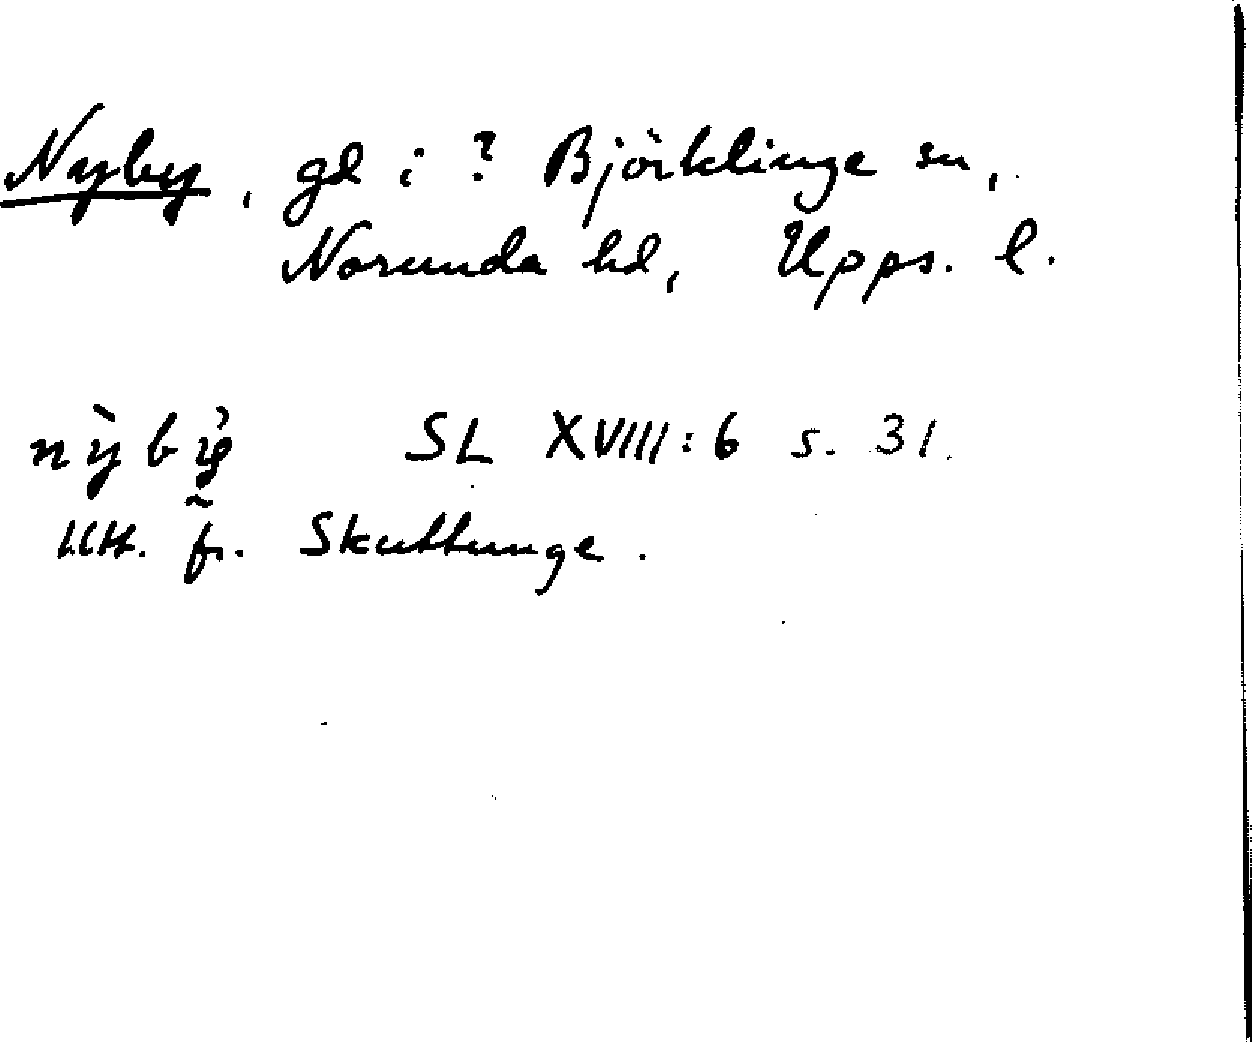 Nyby, gd i ? Björklinge sn,
Norunda hd, Upps. l.
nỳbỳ SL XVIII:6 s. 31.
utt. fr. Skuttunge.